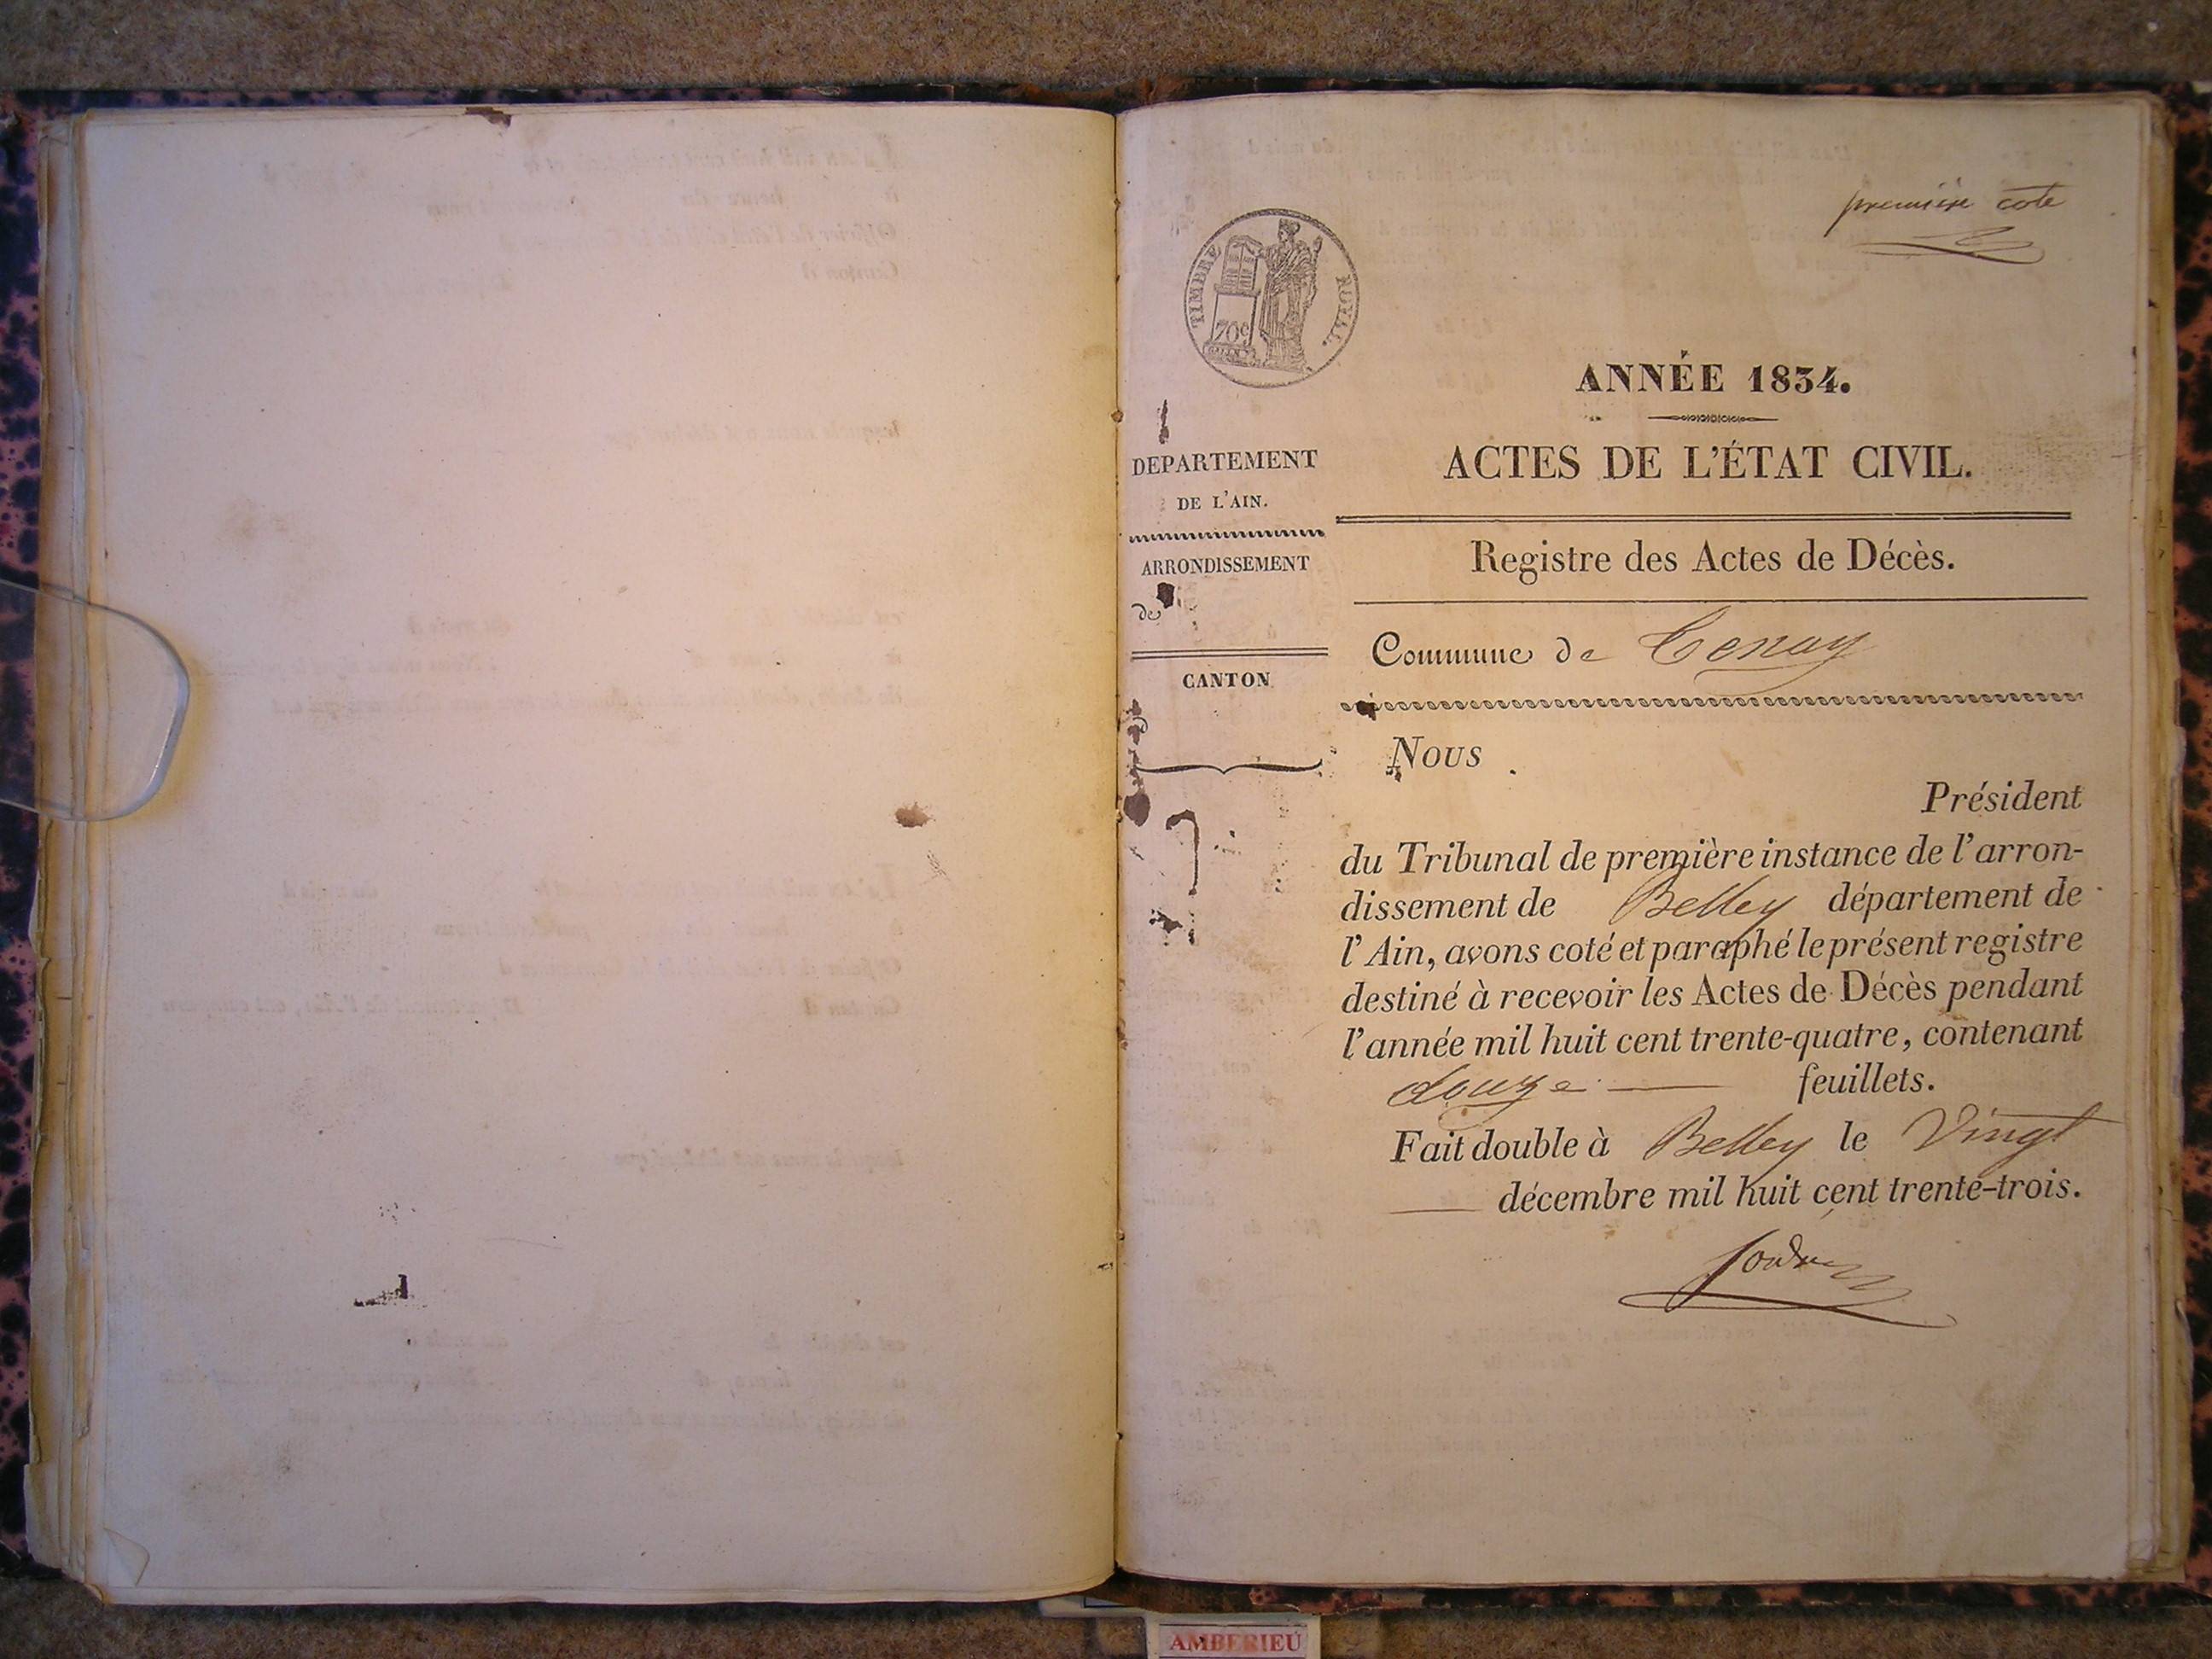 première cote
TIMBRE ROYAL.
70c
ANNÉE 1834.
DEPARTEMENT
DE L'AIN.
ARRONDISSEMENT
de
CANTON
ACTES DE L'ÉTAT CIVIL.
Registre des Actes de Décès.
Commune de Tenay
Nous
Président
du Tribunal de première instance de l'arron-
dissement de Belley département de
l'Ain, avons coté et paraphé le présent registre
destiné à recevoir les Actes de Décès pendant
l'année mil huit cent trente-quatre, contenant
douze feuillets.
Fait double à Belley le Vingt
décembre mil huit cent trente-trois.
AMBERIEU